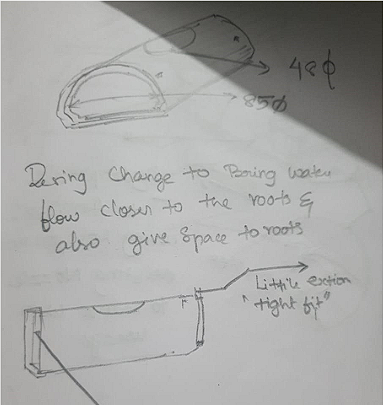 48ϕ
85ϕ
Dering Change to Boring water
flow closer to the roots &
also give Space to roots
Little
"tight fit"